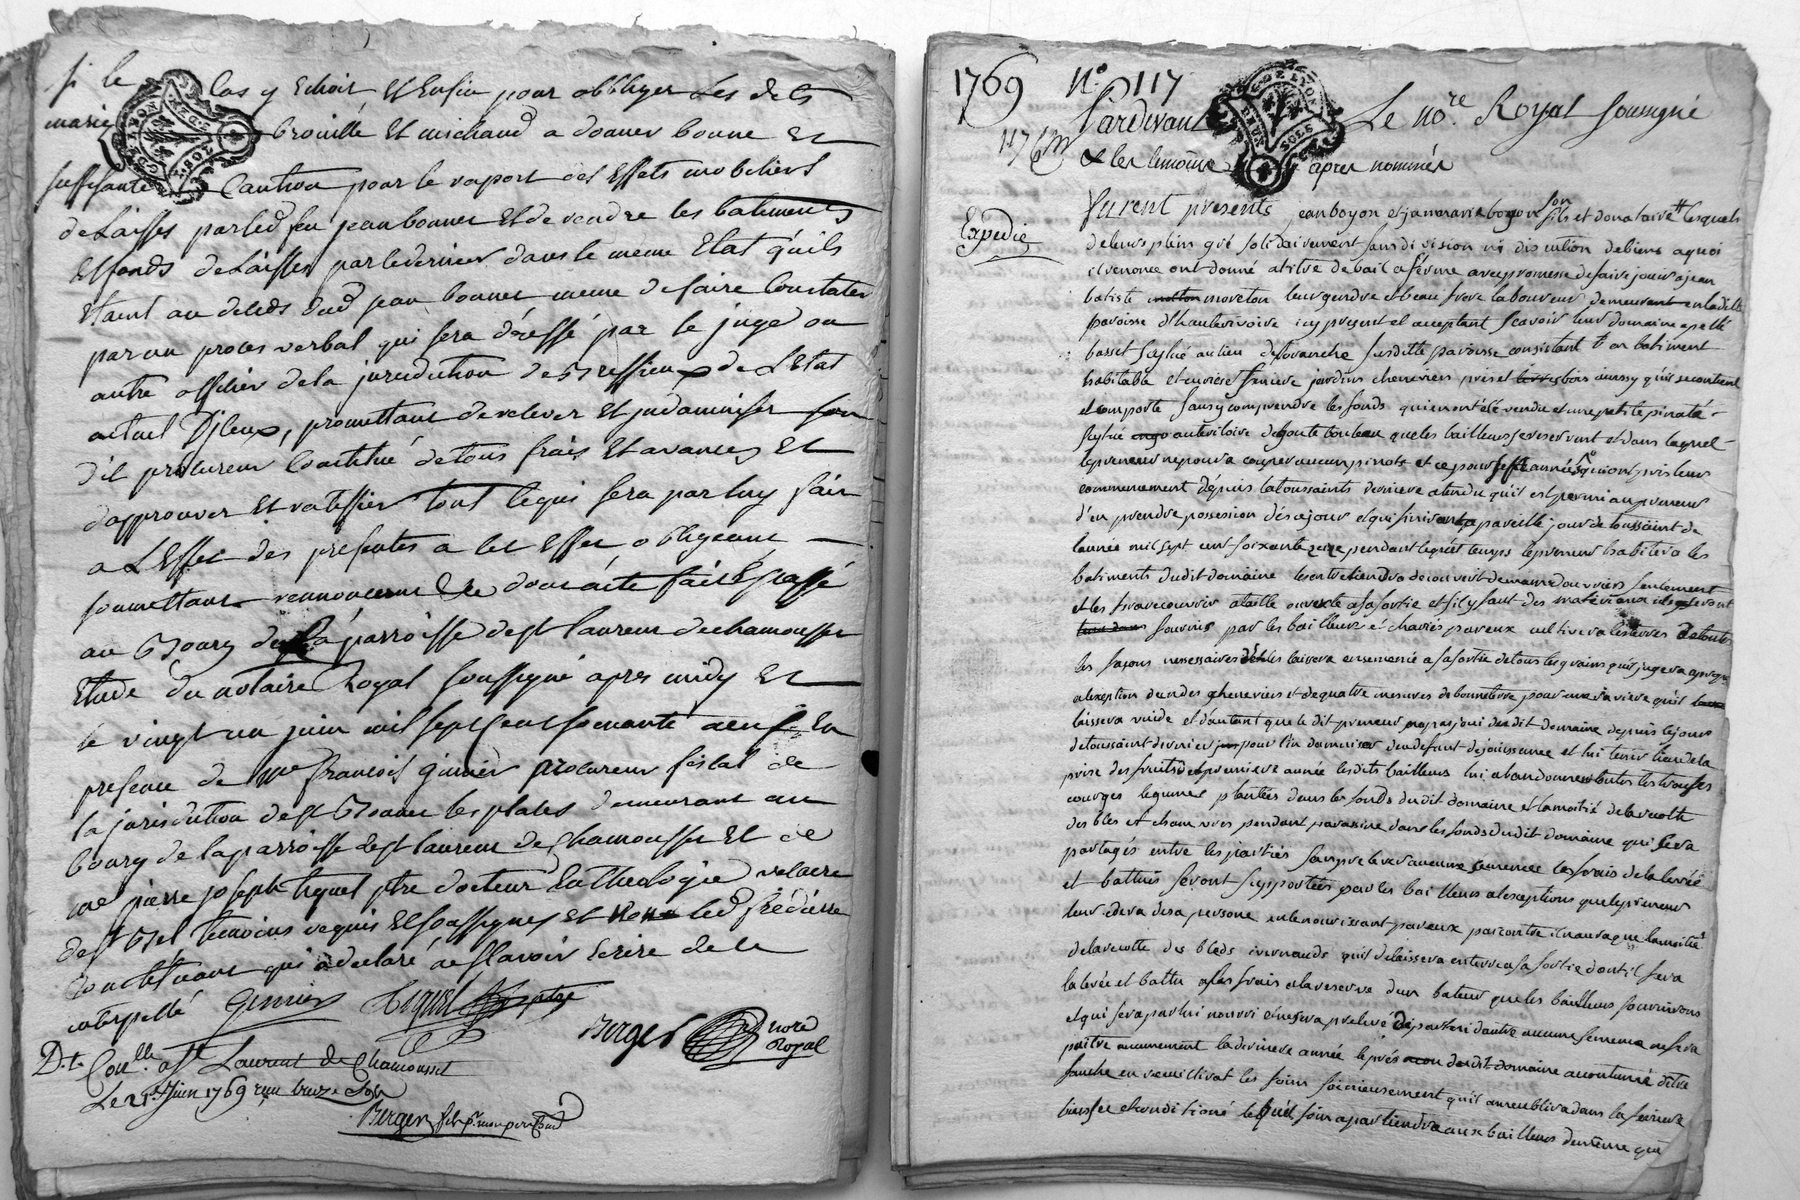 si le cas y Echoit Et Enfin pour obbliger Les dets
marie brouille Et michaud a donner bonne Et
suffisante Caution pour le raport des Effets mobiliers
delaisses par led feu jean bonnet Et de rendre les batiments
Et fonds delaisses par le dernier dans le meme Etat qu'ils
Etaint au deceds dud jean bonnet meme de faire Constater
par un proces verbal qui sera dressé par le juge ou
autre officier de la jurisdiction de Bressieux de L'Etat
actuel D'jleux, promettant de relever Et jndamniser
d'it procureur Constitué de tous frais Et avances Et
d'approuver Et ratiffier tout Ce qui sera par luy fait
a L'Effet des presentes a cet Effet obligeant
soumettant renonceant &c dont acte fait Et passé
au Bourg de la parroisse de st laurent de chamousset
Etude du notaire Royal soussigné apres midy Et
le vingt un juin mil sept cent soixante neuf En
presence de me françois ginier procureur fiscal de
la jurisdiction de st Bonnet les places demeurant au
bourg de la parroisse de st laurent de Chamousset Et de
me pierre joseph Liquet ptre docteur En theologie vicaire
de st Bel temoins requis Et soussignes Et non led
Constituant qui a declaré ne sçavoir Ecrire de ce
interpellé Ginier Liquet ptre
Berger nore Royal
D.t. Conllé a St Laurent de Chamousset
Le 21e Juin 1769 reçu treize sols
Berger
1769 No 117
Pardevant Le nore Royal soussigné
117
& les temoins apres nommés
Expedié
furent presents jean boyon et jean marie boyon son fils et donataire lesquels
de leurs plein gré solidairement sans division ni discution de biens a quoi
il renonce ont donné a titre de bail a ferme avec promesse de faire jouir a jean
batiste moreton leur gendre et beau frere laboureur demeurant en la dite
paroisse d'hauterivoire icy present et acceptant scavoir leur domaine apellé
basset scytué au lieu de susditte paroisse consistant en batiment
habitable et curiere jardins cheneviers pres et bois ainssy qu'il se contient
et comporte sans y comprendre les fonds qui en ont été vendu et une petite pinatée
scytué au territoire de que les bailleurs se reservent et dans laquel-
le preneur ne pourra couper aucun pinots et ce pour sept années qui ont pris leur
commencement depuis la toussaints derniere atendu qu'il est permi au preneur
d'en prendre possession dés ce jour et qui finiront a pareille jour de toussaint de
l'année mil sept cent soixante seize pendant lequel temps le preneur habitera les
batiments dudit domaine les entretiendra de couvert de main d'ouvriers seulement
et les fera recouvrir a taille ouverte a sa sortie et s'il y faut des materiaux ils seront
fournies par les bailleurs et charies par eux cultivera les terres de toutes
les façons necessaires et les laissera ensemencé a sa sortie de tous les grains qu'il jugera apropos
a l'exeption d'un des cheneviers et de quatre mesures de bonne terre pour une raviere qu'il
laissera vuide et d'autant que le dit preneur n'a pas joui dudit domaine depuis le jour
de toussaint dernier pour l'in damniser du defaut de joissance et lui tenir lieu de la
prise des fruits de premiere année lesdits bailleurs lui abandonnent toutes les truffes
courges legumes plantées dans les fonds dudit domaine et la moitié de la recolte
des bles et chanvres pendant par racine dans les fonds dudit domaine qui sera
partagés entre les parties sans prelever aucune semence les frais de la levée
et battus seront supportées par les bailleurs a l'exeptions que le preneur
leur edera de sa persone en le nourissant par eux par contre il n'aura que la moitié
de la recolte des bleds ivernauds qu'il delaissera en terre a sa sortie dont il fera
la levée et battu a ses frais a la reserve d'un bateur que les bailleurs fourniront
et qui sera par lui nourri et ne sera prelevé de part ni d'autre aucune semence ne fera
paitre aucunement la derniere année les prés dudit domaine accoutumé d'etre
fauché en receuillirat les foins soigneusement qu'il anreublira dans la feniere
bien sec et conditioné lequel foin apartiendra aux bailleurs de meme que